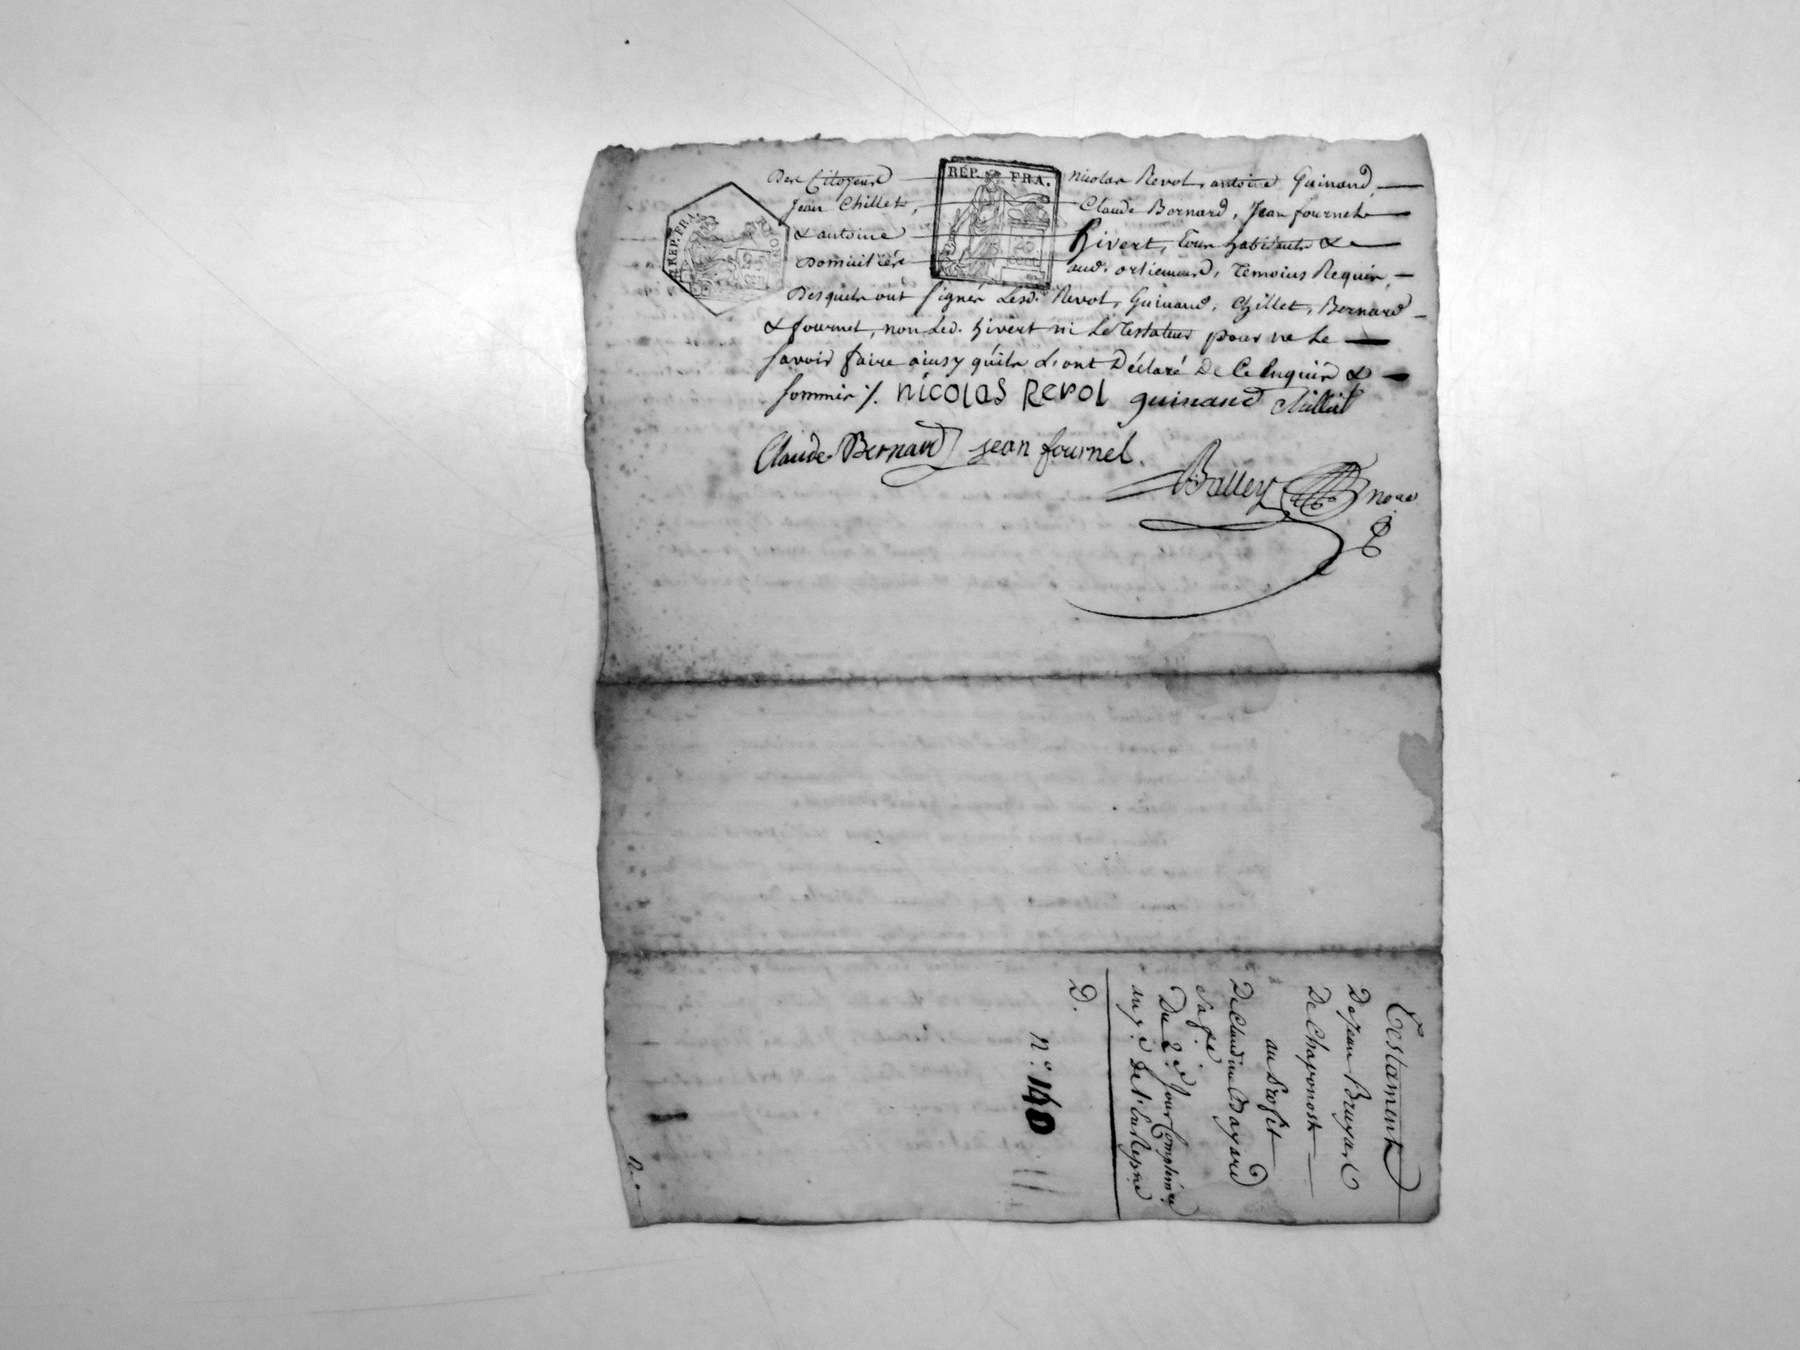 Des Citoyens Nicolas Revol, antoine Guinand,
Jean Chillet, Claude Bernard, Jean fournel
& antoine hivert, tous habitants &
Domiciliés aud. orlienard, Temoins Requis,
Desquels ont signés Lesd. Revol, Guinand, Chillet, Bernard
& fournel, non Led. hivert ni Le Testateur pour ne Le
savoir faire ainsy qu'ils L'ont Déclaré De Ce Enquis &
sommis ⁒. nicolas Revol guinand chillet
Claude Bernard jean fournel.
Balley nore
REP. FRA.
REP. FRA.
Testament
De Jean Bruyas
De Chaponost
au Profit
De Claudine Bayard
Sa fe
Du 2.e Jour Complem.re
an 7.e De L'ere Repne
D.
n.º 140